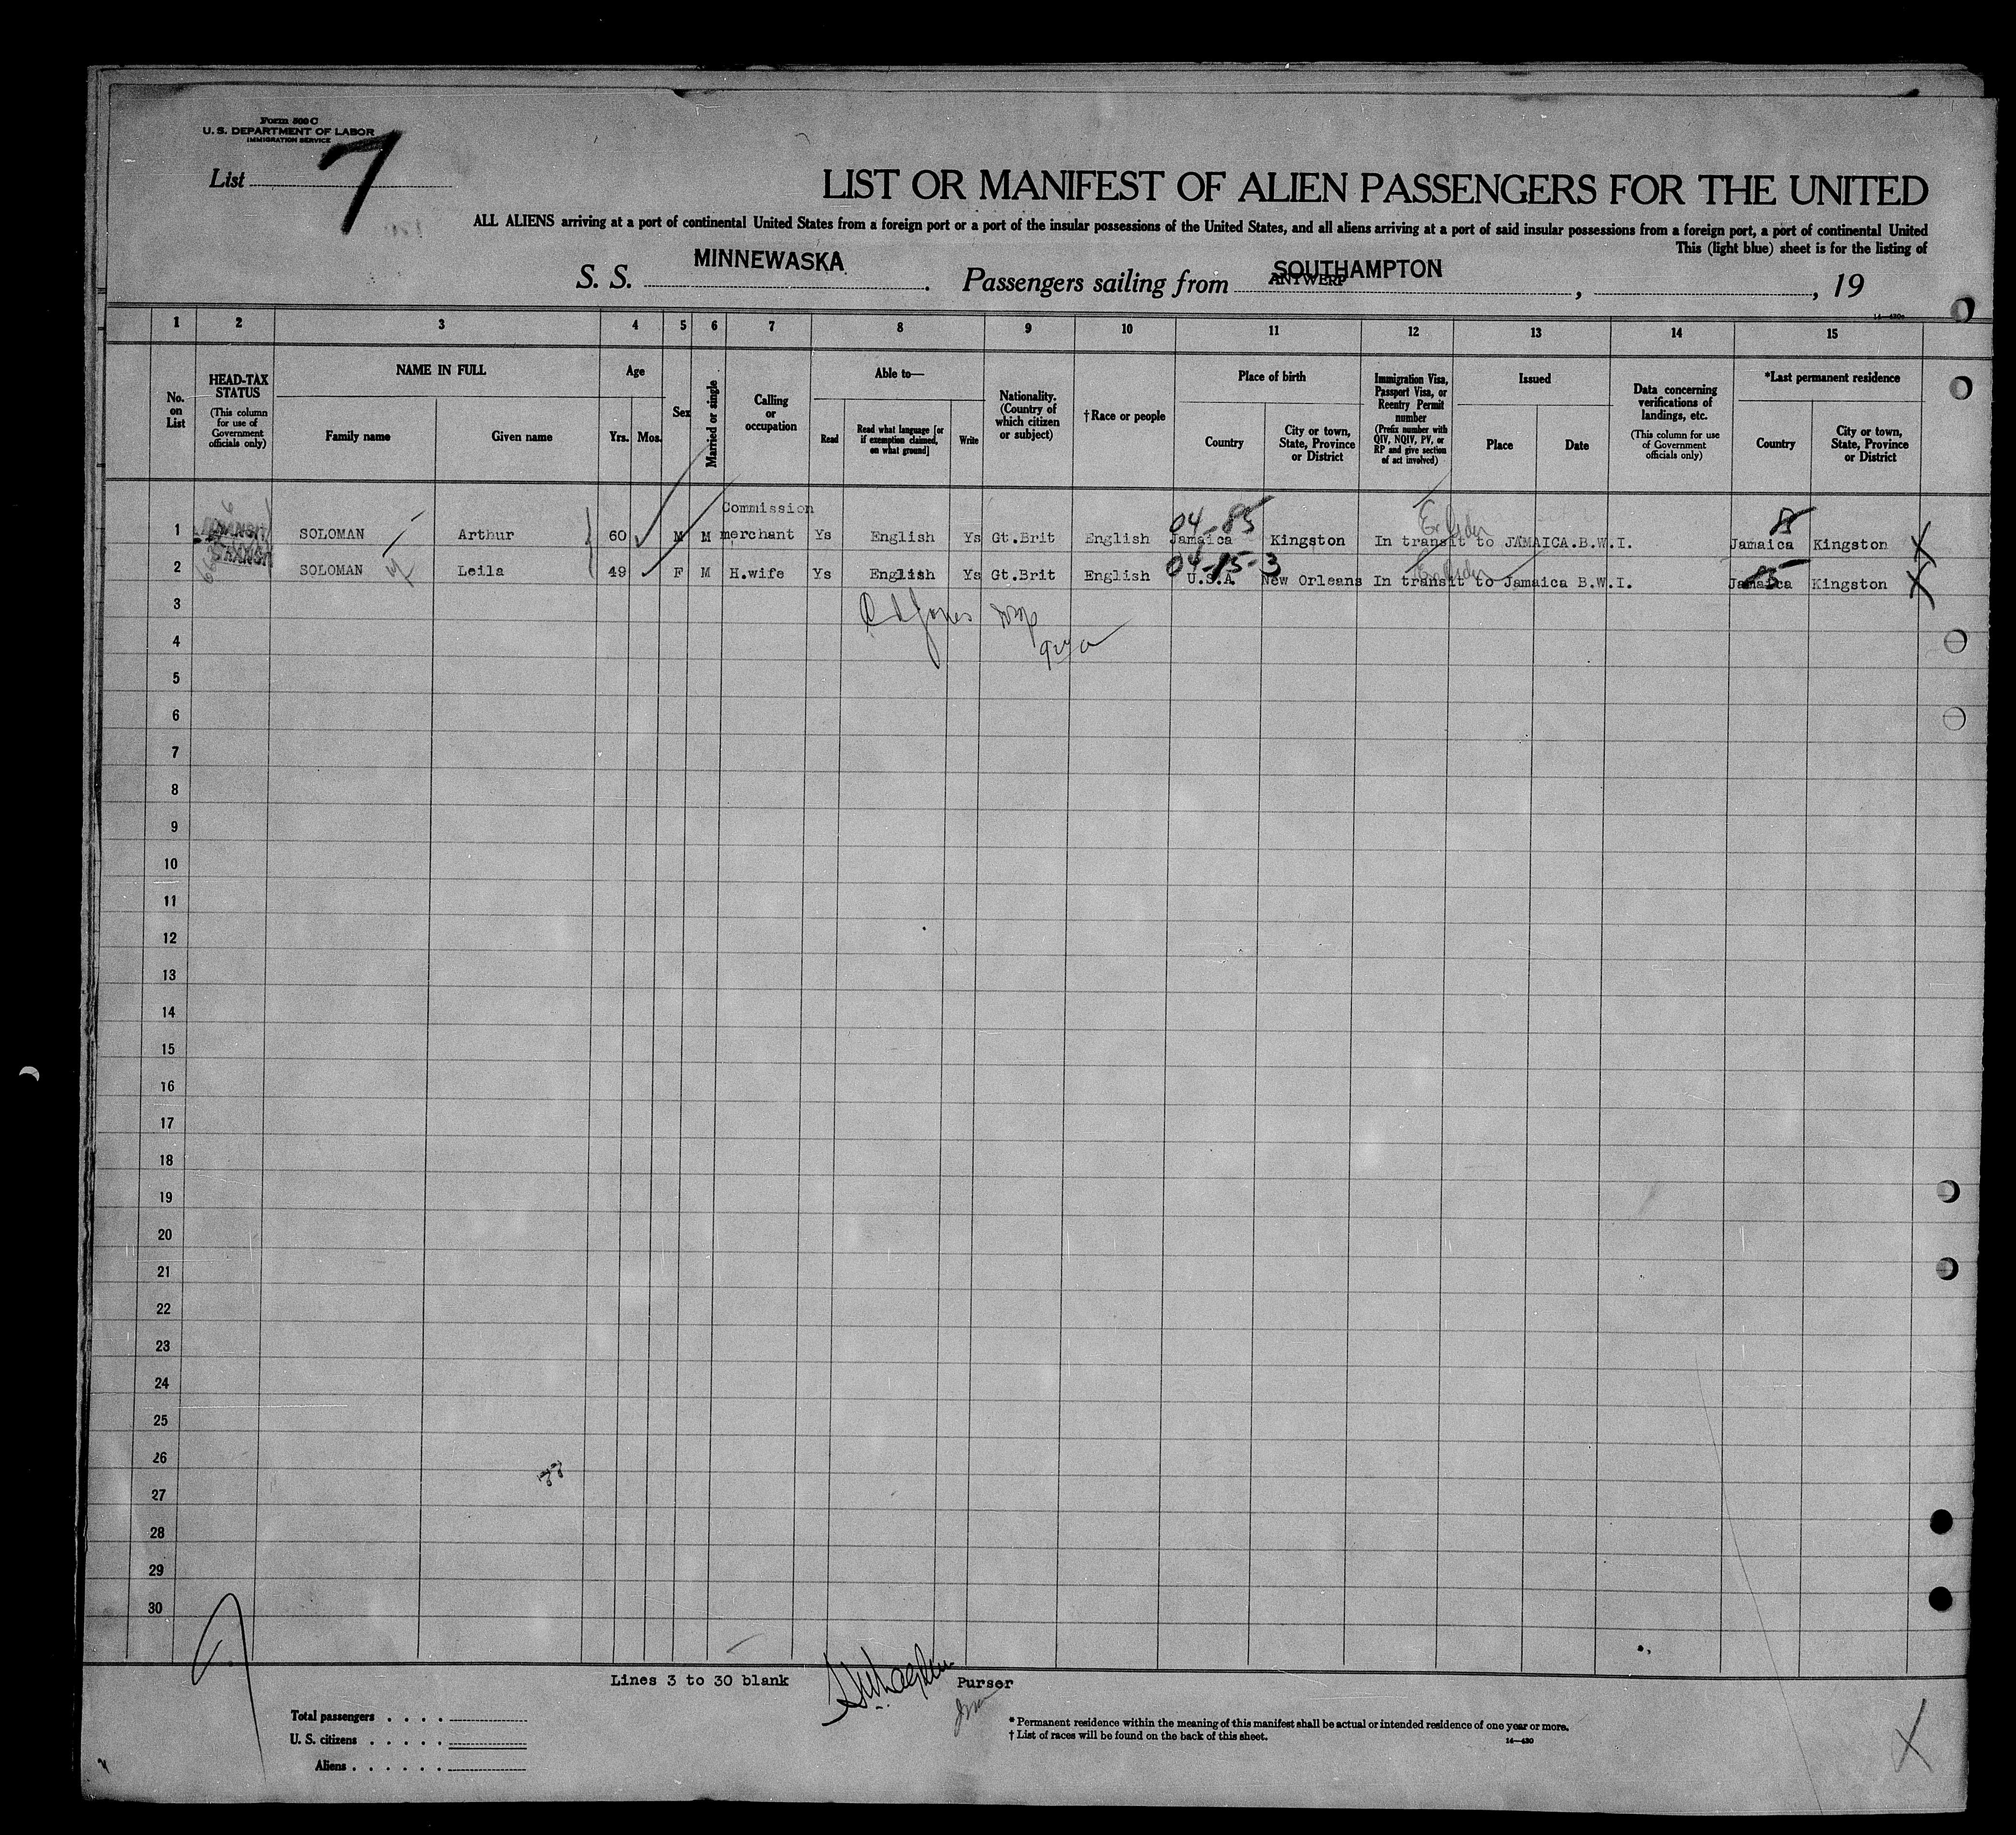 Form 500 C
U. S. DEPARTMENT OF LABOR
IMMIGRATION SERVICE
List 7
LIST OR MANIFEST OF ALIEN PASSENGERS FOR THE UNITED
ALL ALIENS arriving at a port of continental United States from a foreign port or a port of the insular possessions of the United States, and all aliens arriving at a port of said insular possessions from a foreign port, a port of continental United
This (light blue) sheet is for the listing of
S. S. MINNEWASKA. Passengers sailing from SOUTHAMPTON ANTWERP, , 19
1 2 3 4 5 6 7 8 9 10 11 12 13 14 15
No. on List
HEAD-TAX STATUS (This column for use of Government officials only)
NAME IN FULL
Family name Given name
Age
Yrs. Mos.
Sex
Married or single
Calling or occupation
Able to—
Read Read what language [or if exemption claimed, on what ground] Write
Nationality. (Country of which citizen or subject)
†Race or people
Place of birth
Country City or town, State, Province or District
Immigration Visa, Passport Visa, or Reentry Permit number (Prefix number with QIV, NQIV, PV, or RP and give section of act involved)
Issued
Place Date
Data concerning verifications of landings, etc. (This column for use of Government officials only)
*Last permanent residence
Country City or town, State, Province or District
04-85 85
1 TRANSIT SOLOMAN Arthur 60 M M Commission merchant Ys English Ys Gt.Brit English Jamaica Kingston In transit to JAMAICA.B.W.I. Jamaica Kingston X
04-15-3 85
2 TRANSIT SOLOMAN Leila 49 F M H.wife Ys English Ys Gt.Brit English U.S.A New Orleans In transit to Jamaica B.W.I. Jamaica Kingston X
3
4
5
6
7
8
9
10
11
12
13
14
15
16
17
18
19
20
21
22
23
24
25
26
27
28
29
30
Lines 3 to 30 blank Purser
Total passengers . . . .
U. S. citizens . . . . .
Aliens . . . . . .
* Permanent residence within the meaning of this manifest shall be actual or intended residence of one year or more.
† List of races will be found on the back of this sheet.
14—430
X